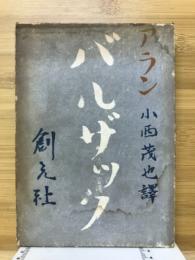 アラン
小西茂也譯
バルザック
創元社